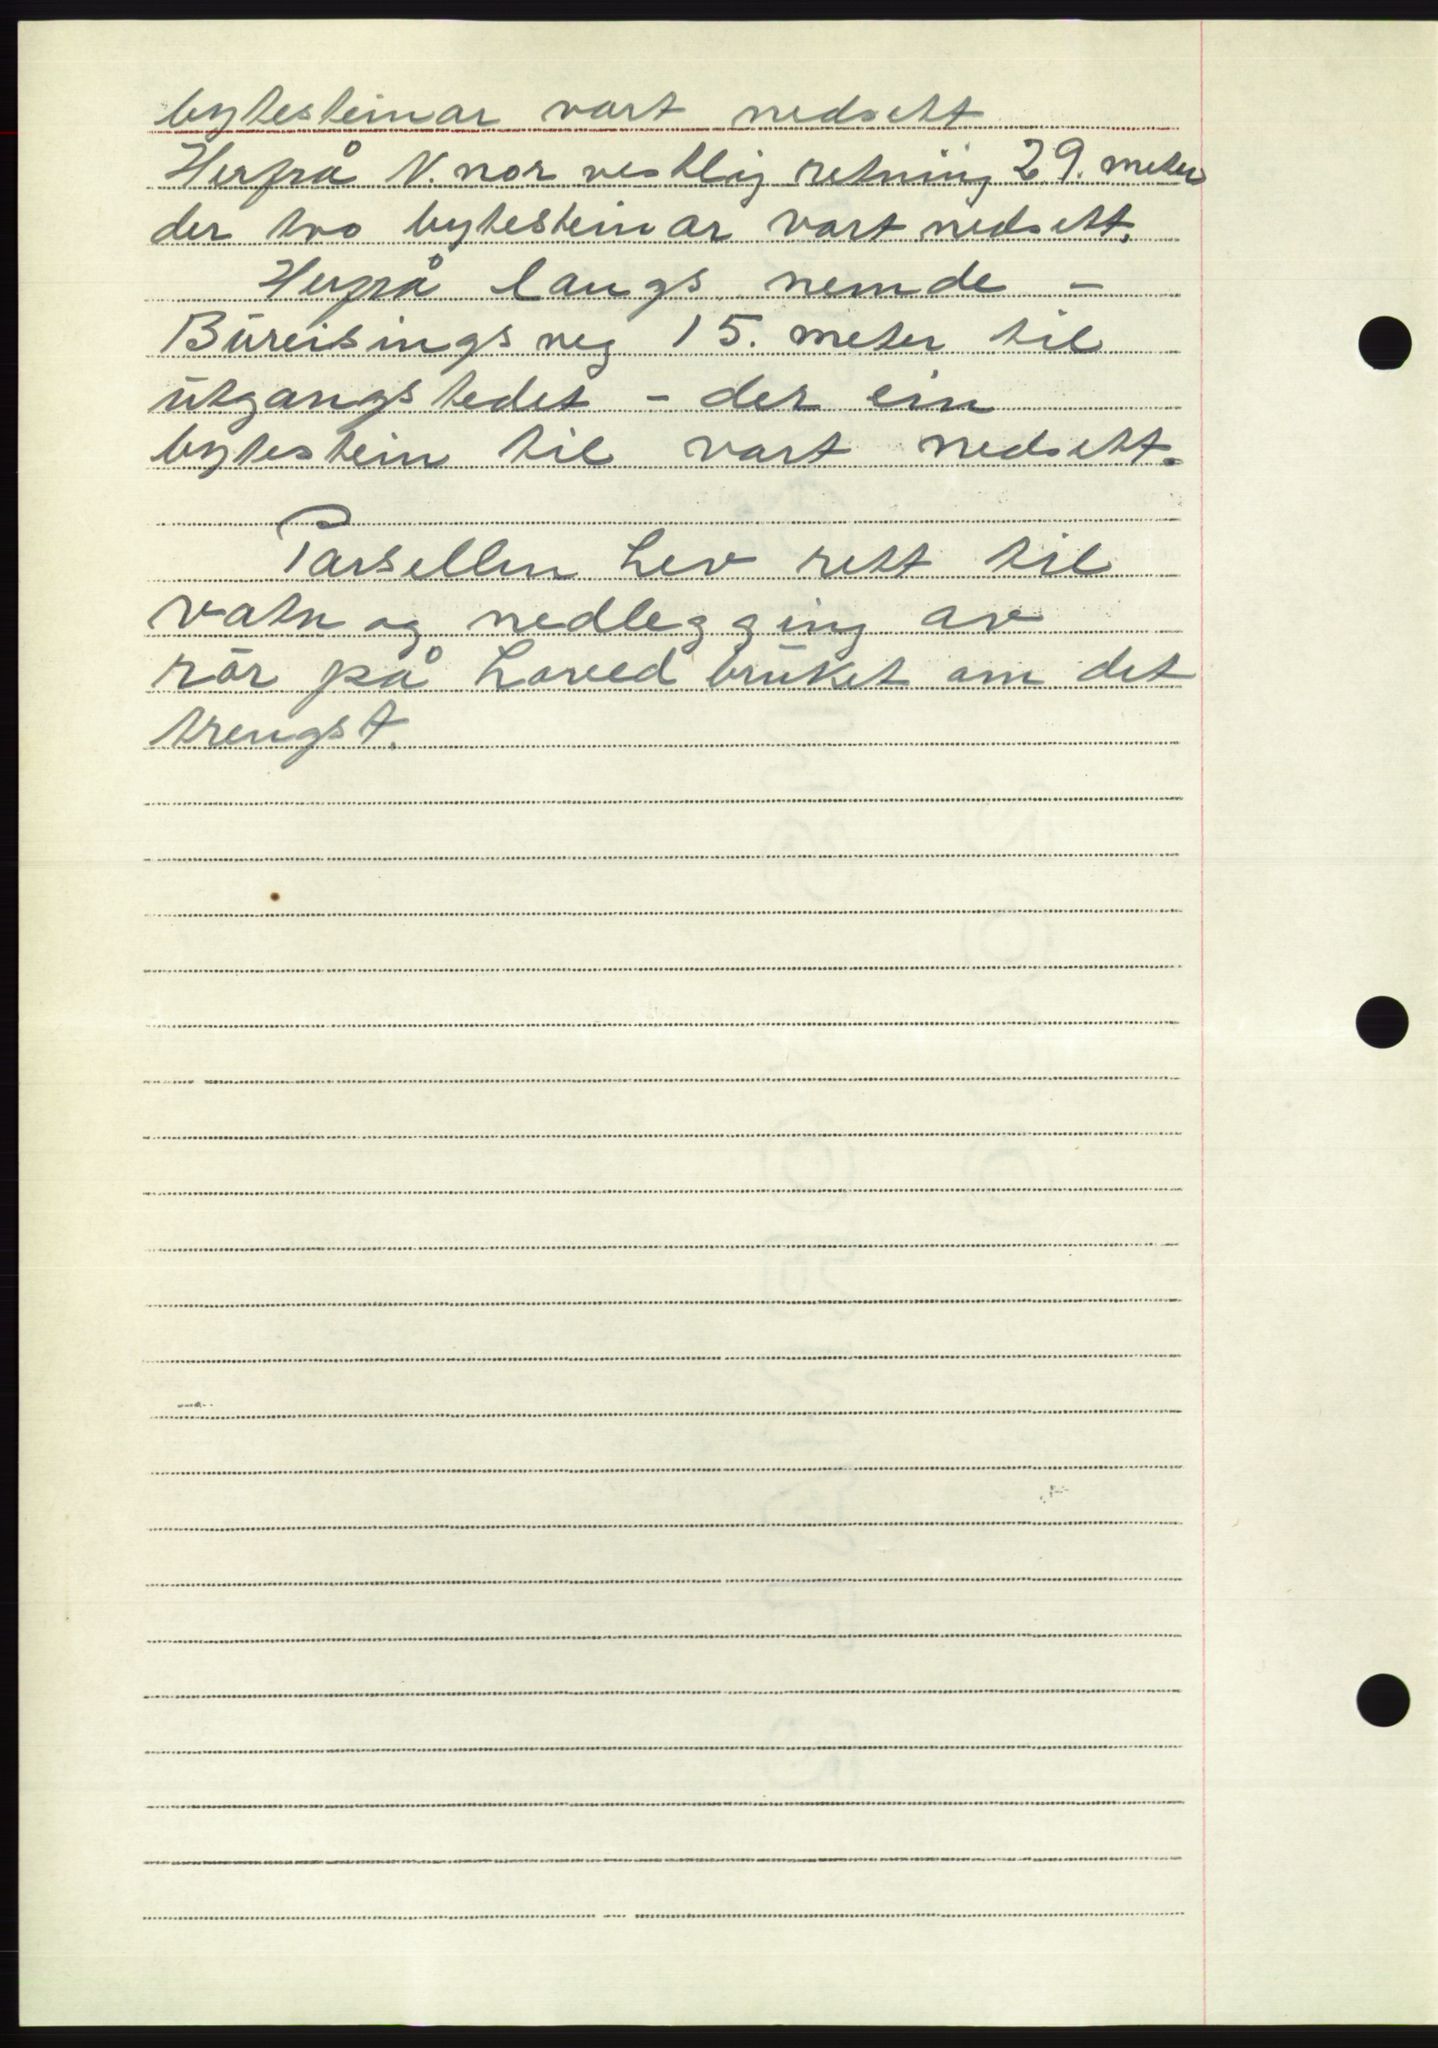 bytesteinar vart nedsett
Herfrå N. nor vestlig retning 29. meter
der tvo bytesteinar vart nedsett.
Herfrå langs nemde -
Büreisingsveg 15. meter til
ütgangstedet - der ein
bytestein til vart nedsett.
Parsellen hev rett til
vatn og nedlegging av
rör på hoved brüket om det
trengst.